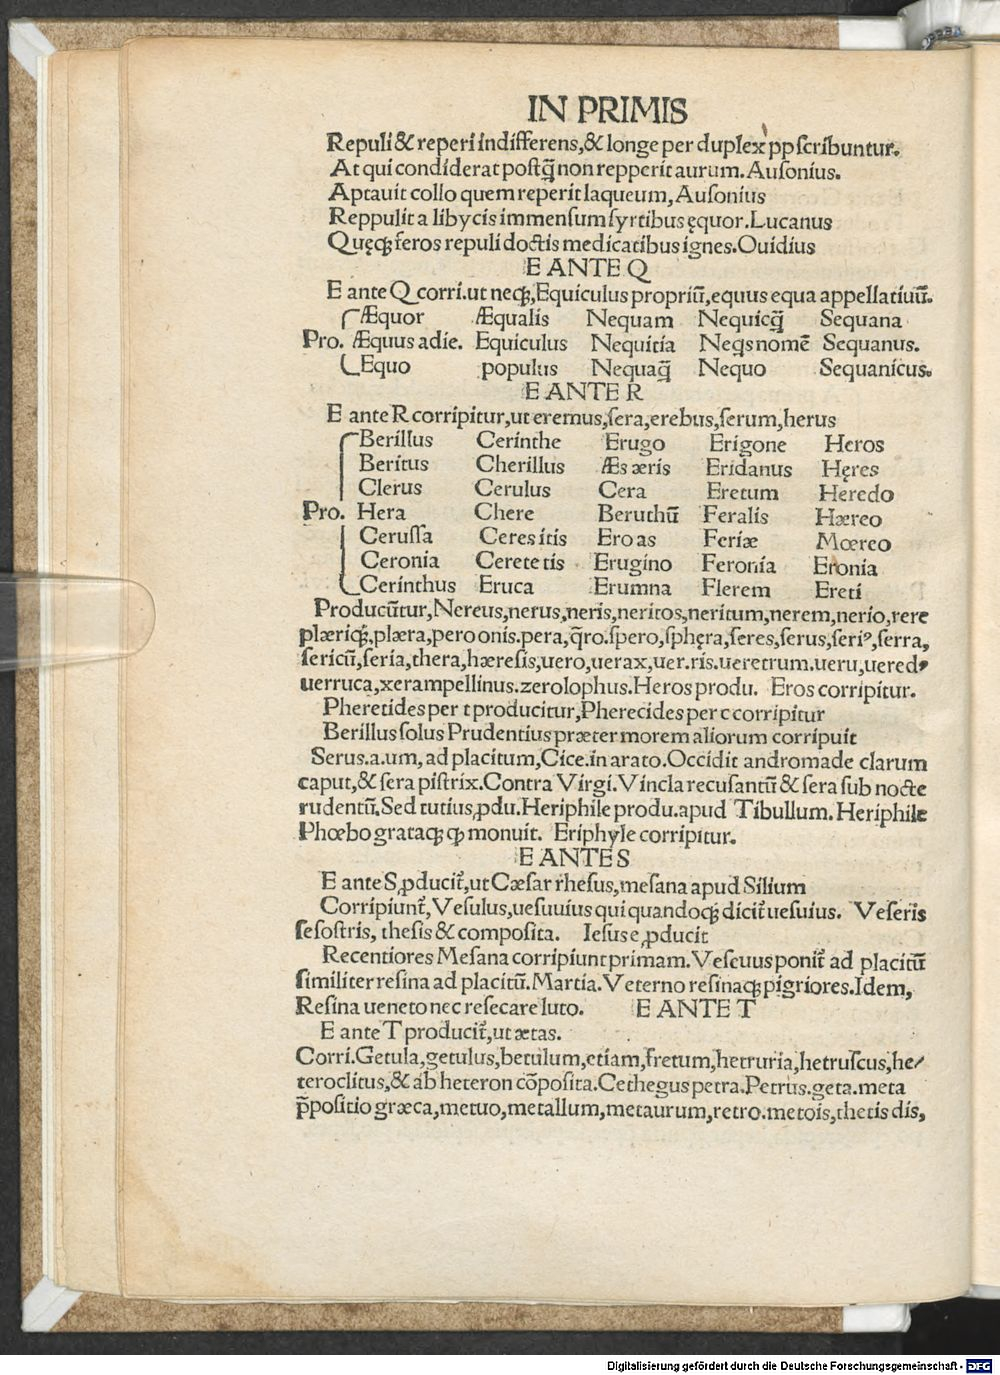 IN PRIMIS
Repuli & reperi indifferens, & longe per duplex pp scribuntur.
At qui condiderat postq̃ non repperit aurum. Ausonius.
Aptauit collo quem reperit laqueum, Ausonius
Reppulit a libycis immensum syrtibus ęquor. Lucanus
Quęq; feros repuli doctis medicatibus ignes. Ouidius
E ANTE Q
E ante Q corri. ut neq;, Equiculus propriũ, equus equa appellatiuũ.
Æquor Æqualis Nequam Nequicq̃ Sequana
Pro. Æquus adie. Equiculus Nequitia Neqs nomẽ Sequanus.
Equo populus Nequaq̃ Nequo Sequanicus.
E ANTE R
E ante R corripitur, ut eremus, sera, erebus, serum, herus
Berillus Cerinthe Erugo Erigone Heros
Beritus Cherillus Æs æris Eridanus Hęres
Clerus Cerulus Cera Eretum Heredo
Pro. Hera Chere Beruthũ Feralis Hæreo
Cerussa Ceres itis Ero as Feriæ Mœreo
Ceronia Cerete tis Erugino Feronia Eronia
Cerinthus Eruca Erumna Flerem Ereti
Producũtur, Nereus, nerus, neris, neritos, neritum, nerem, nerio, rere
plæriq;, plæra, pero onis. pera, q̃ro. spero, sphęra, seres, serus, seriꝰ, serra,
sericũ, seria, thera, hæresis, uero, uerax, uer. ris. ueretrum. ueru, ueredꝰ
uerruca, xerampellinus. zerolophus. Heros produ. Eros corripitur.
Pheretides per t producitur, Pherecides per c corripitur
Berillus solus Prudentius præter morem aliorum corripuit
Serus. a. um, ad placitum, Cice. in arato. Occidit andromade clarum
caput, & sera pistrix. Contra Virgi. Vincla recusantũ & sera sub nocte
rudentũ. Sed tutius ꝓdu. Heriphile produ. apud Tibullum. Heriphile
Phœbo grataq; ꝙ monuit. Eriphyle corripitur.
E ANTE S
E ante S ꝓducit᷑, ut Cæsar rhesus, mesana apud Silium
Corripiunt᷑, Vesulus, uesuuius qui quandoq; dicit᷑ uesuius. Veseris
sesostris, thesis & composita. Iesus e ꝓducit
Recentiores Mesana corripiunt primam. Vescuus ponit᷑ ad placitũ
similiter resina ad placitũ. Martia. Veterno resinaq; pigriores. Idem,
Resina ueneto nec resecare luto. E ANTE T
E ante T producit᷑, ut ætas.
Corri. Getula, getulus, betulum, etiam, fretum, hetruria, hetruscus, he/
teroclitus, & ab heteron cõposita. Cethegus petra. Petrus. geta. meta
p̃positio græca, metuo, metallum, metaurum, retro. metois, thetis dis,
Digitalisierung gefördert durch die Deutsche Forschungsgemeinschaft - DFG